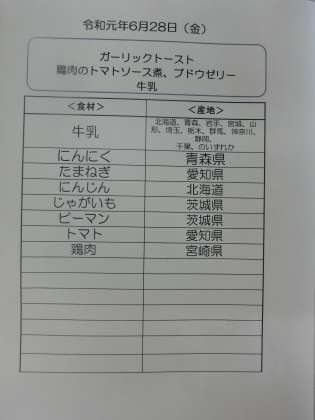 令和元年6月28日（金）
ガーリックトースト
鶏肉のトマトソース煮、ブドウゼリー
牛乳
＜食材＞ ＜産地＞
牛乳 北海道、青森、岩手、宮城、山
形、埼玉、栃木、群馬、神奈川、
静岡、
千葉、のいずれか
にんにく 青森県
たまねぎ 愛知県
にんじん 北海道
じゃがいも 茨城県
ピーマン 茨城県
トマト 愛知県
鶏肉 宮崎県